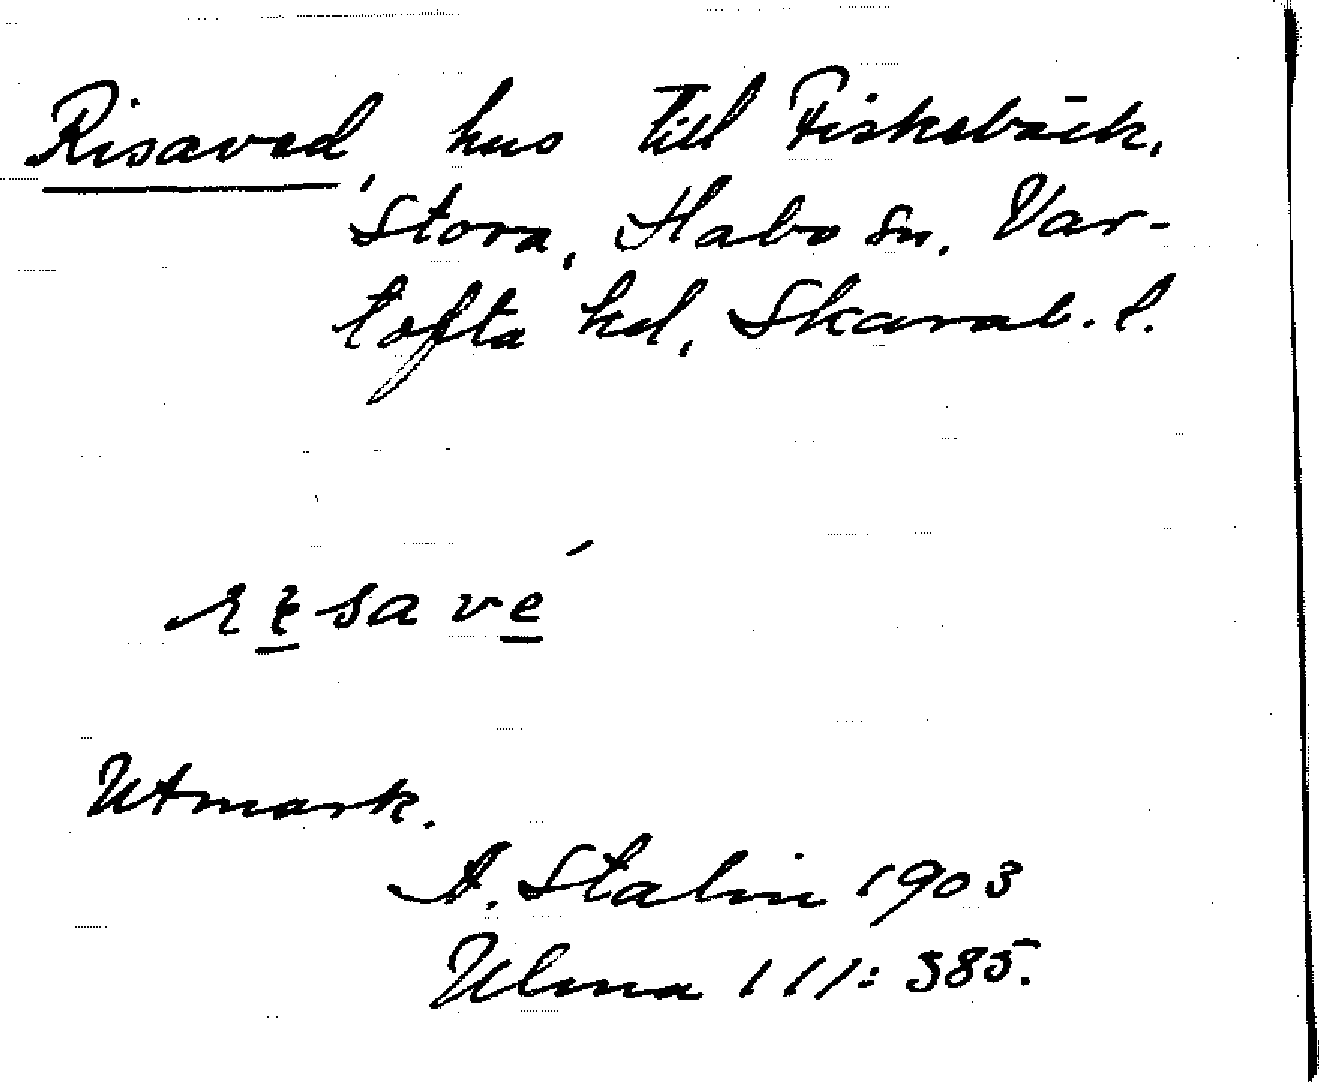 Risaved, hus till Fiskebäck,
Stora, Habo sn, Var-
tofta hd, Skarab. l.
rɩsavé
Utmark.
A. Stalin 1903
Ulma 111: 385.